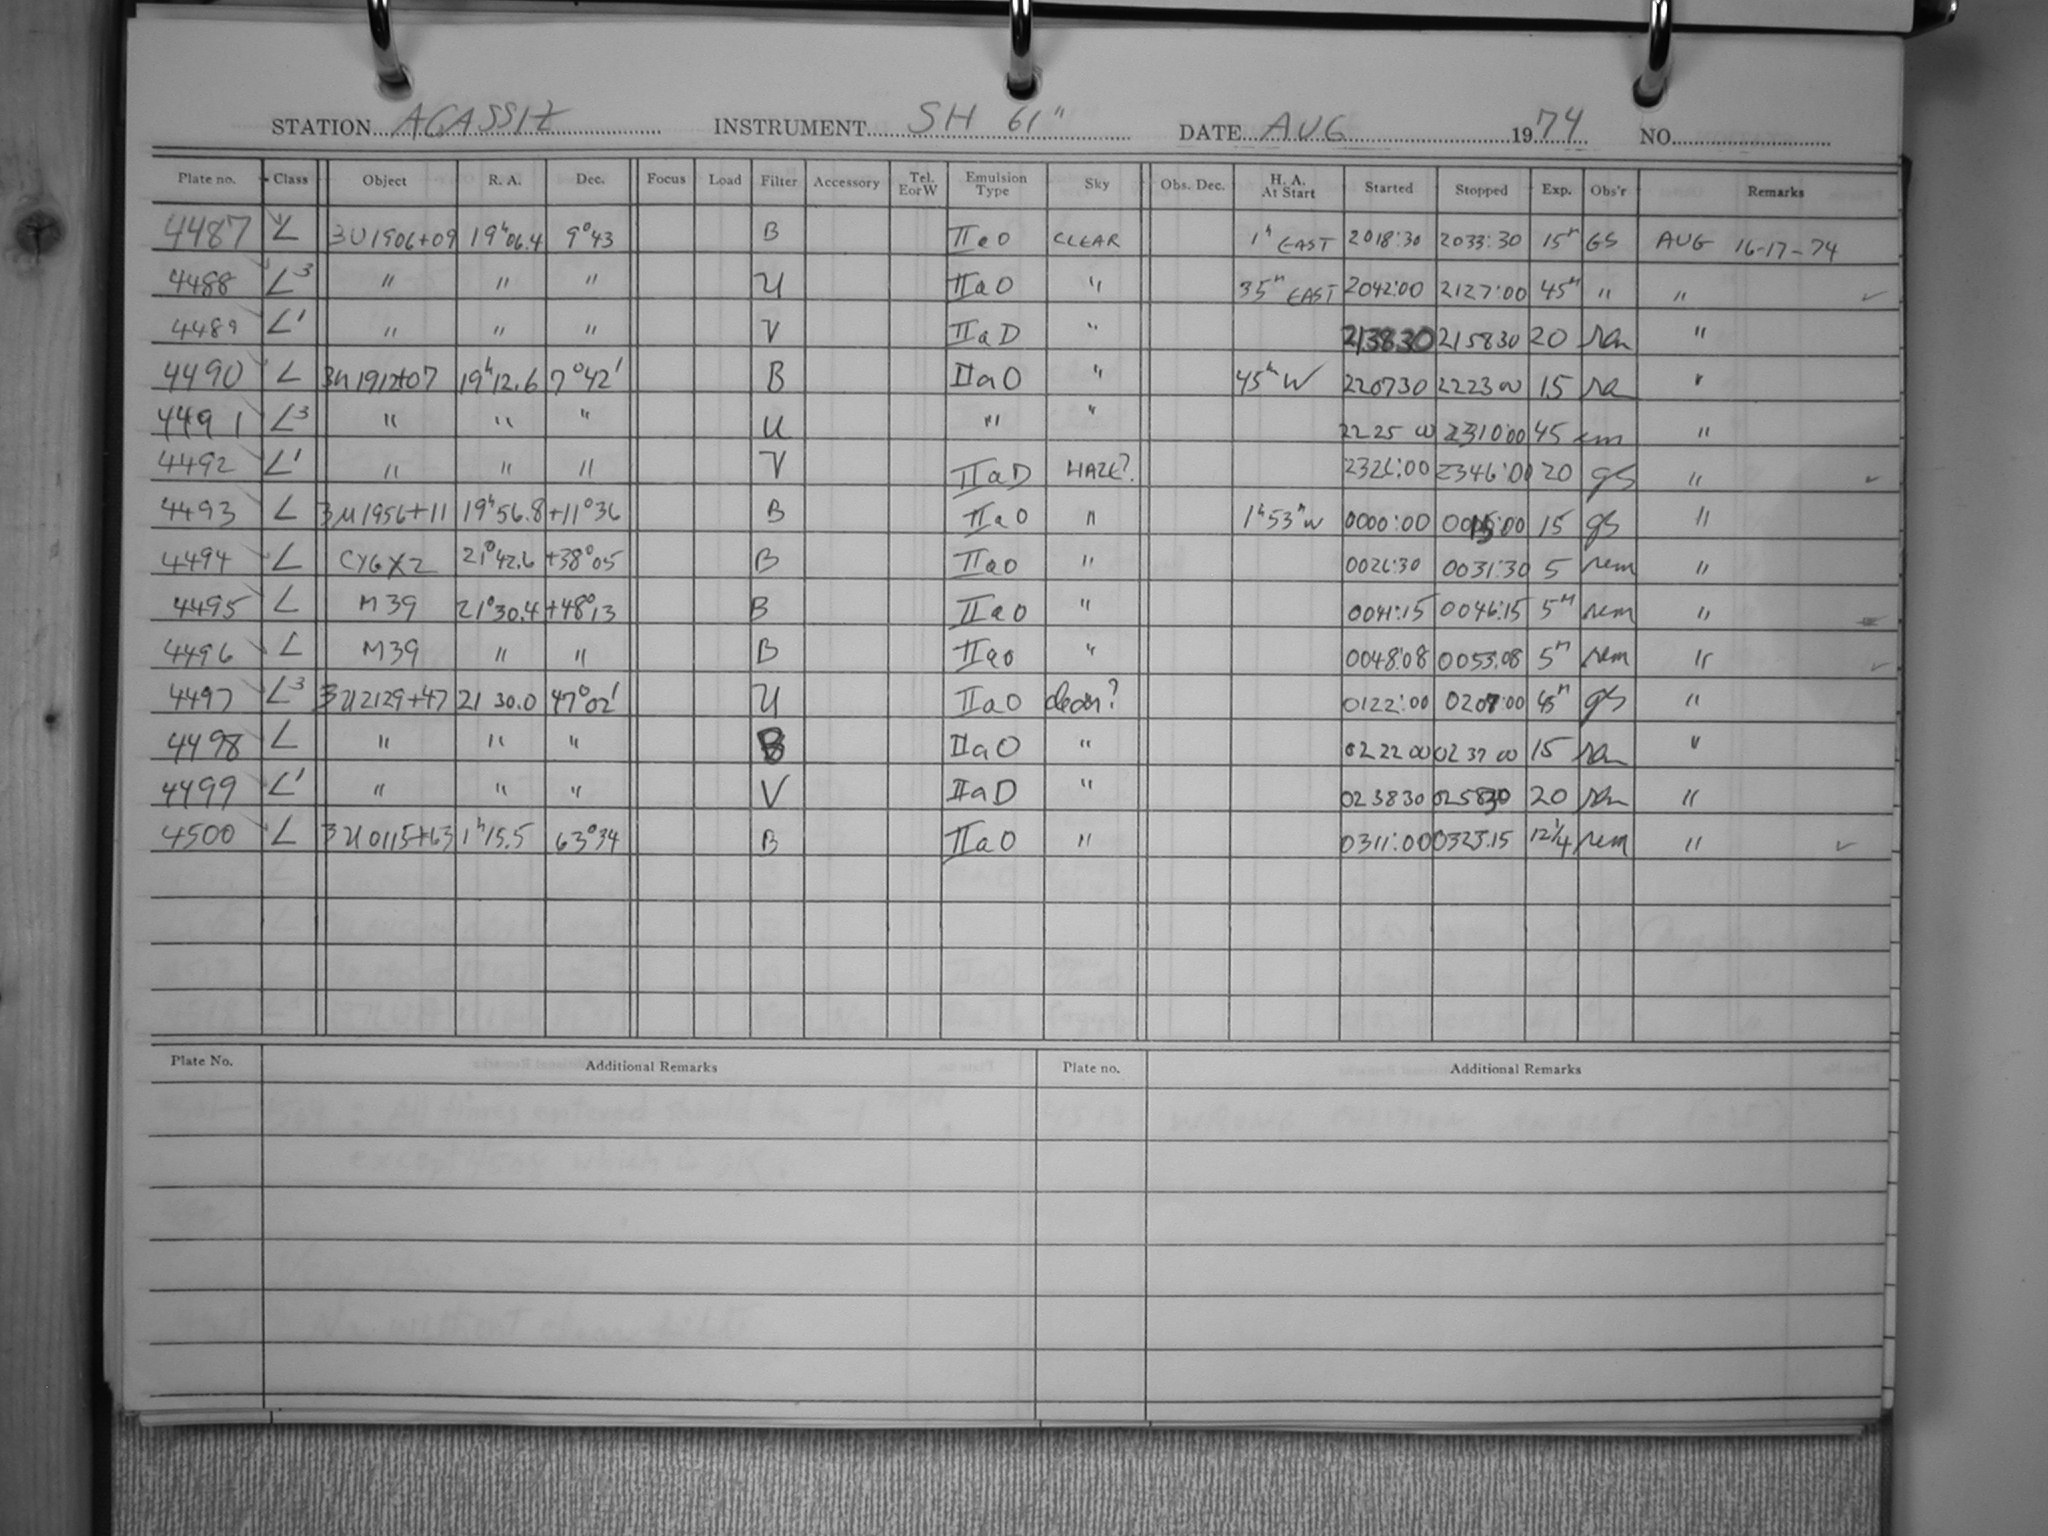 STATION AGASSIZ INSTRUMENT SH 61" DATE AUG 1974 NO.
Plate no. Class Object R. A. Dec. Focus Load Filter Accessory Tel. E or W Emulsion Type Sky Obs. Dec. H. A. At Start Started Stopped Exp. Obs'r Remarks
4487 L 3U1906+09 19h06.4 9°43 B IIaO CLEAR 1h EAST 2018:30 2033:30 15m GS AUG 16-17-74
4488 L3 " " " U IIaO " 35m EAST 2042:00 2127:00 45m " " ✓
4489 L' " " " V IIaD " 213830 215830 20 "
4490 L 3U1912+07 19h12.6 7°42' B IIaO " 45m W 220730 222300 15 "
4491 L3 " " " U " " 222500 2310:00 45 "
4492 L' " " " V IIaD HAZE? 2326:00 2346:00 20 gs " ✓
4493 L 3U1956+11 19h56.8 +11°36 B IIaO " 1h53m W 0000:00 0015:00 15 gs "
4494 L CYG X2 21°42.6 +38°05 B IIaO " 0026:30 0031:30 5 rem "
4495 L M39 21°30.4 +48°13 B IIaO " 0041:15 0046:15 5M rem "
4496 L M39 " " B IIaO " 0048:08 0053:08 5m rem " ✓
4497 L3 3U2129+47 21 30.0 47°02' U IIaO clear? 0122:00 0207:00 45m gs "
4498 L " " " B IIaO " 022200 023700 15 "
4499 L' " " " V IIaD " 023830 025830 20 "
4500 L 3U0115+63 1h15.5 63°34 B IIaO " 0311:00 0323:15 12 1/4 rem " ✓
Plate No. Additional Remarks Plate no. Additional Remarks